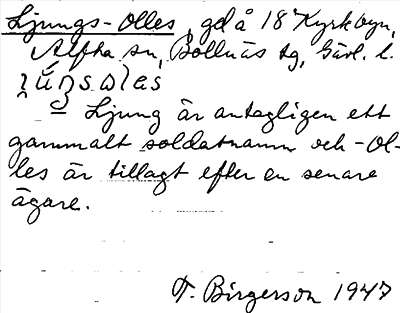 Ljungs-Olles, gd å 18 Kyrkbyn,
Alfta sn, Bollnäs tg, Gävl. l.
Ljung är antagligen ett
gammalt soldatnamn och -Ol-
les är tillagt efter en senare
ägare.
T. Birgerson 1947